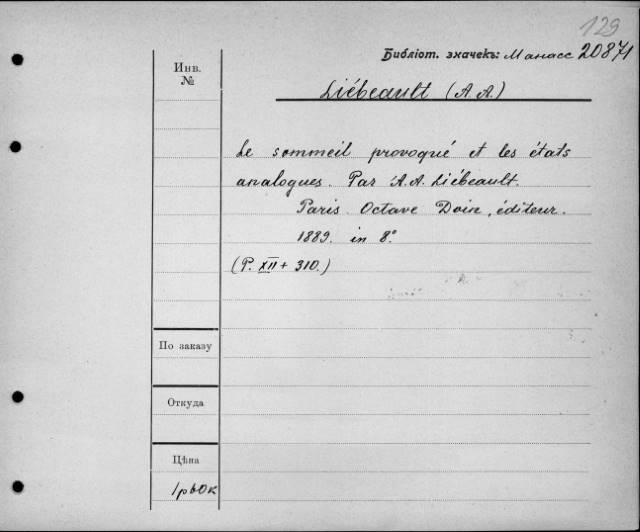 129
Библіот. значекъ: Манасс 20871
Инв. №
Liébeault (A. A.)
Le sommeil provoqué et les états
analogues. Par A. A. Liébeault.
Paris. Octave Doin, éditeur.
1889. in 8°
(P. XII + 310.)
По заказу
Откуда
Цѣна
1 р 60 к